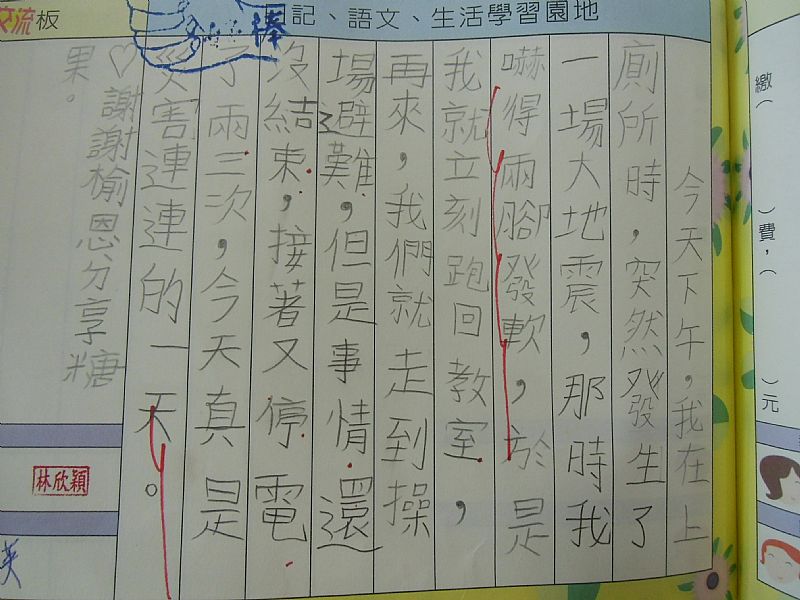 交流板
日記、語文、生活學習園地
棒
今天下午，我在上
廁所時，突然發生了
一場大地震，那時我
嚇得兩腳發軟，於是
我就立刻跑回教室，
再來，我們就走到操
場避難，但是事情還
沒結束，接著又停電
了兩三次，今天真是
災害連連的一天。
♡謝謝榆恩分享糖
果。
林欣穎
繳（　）費，（　）元